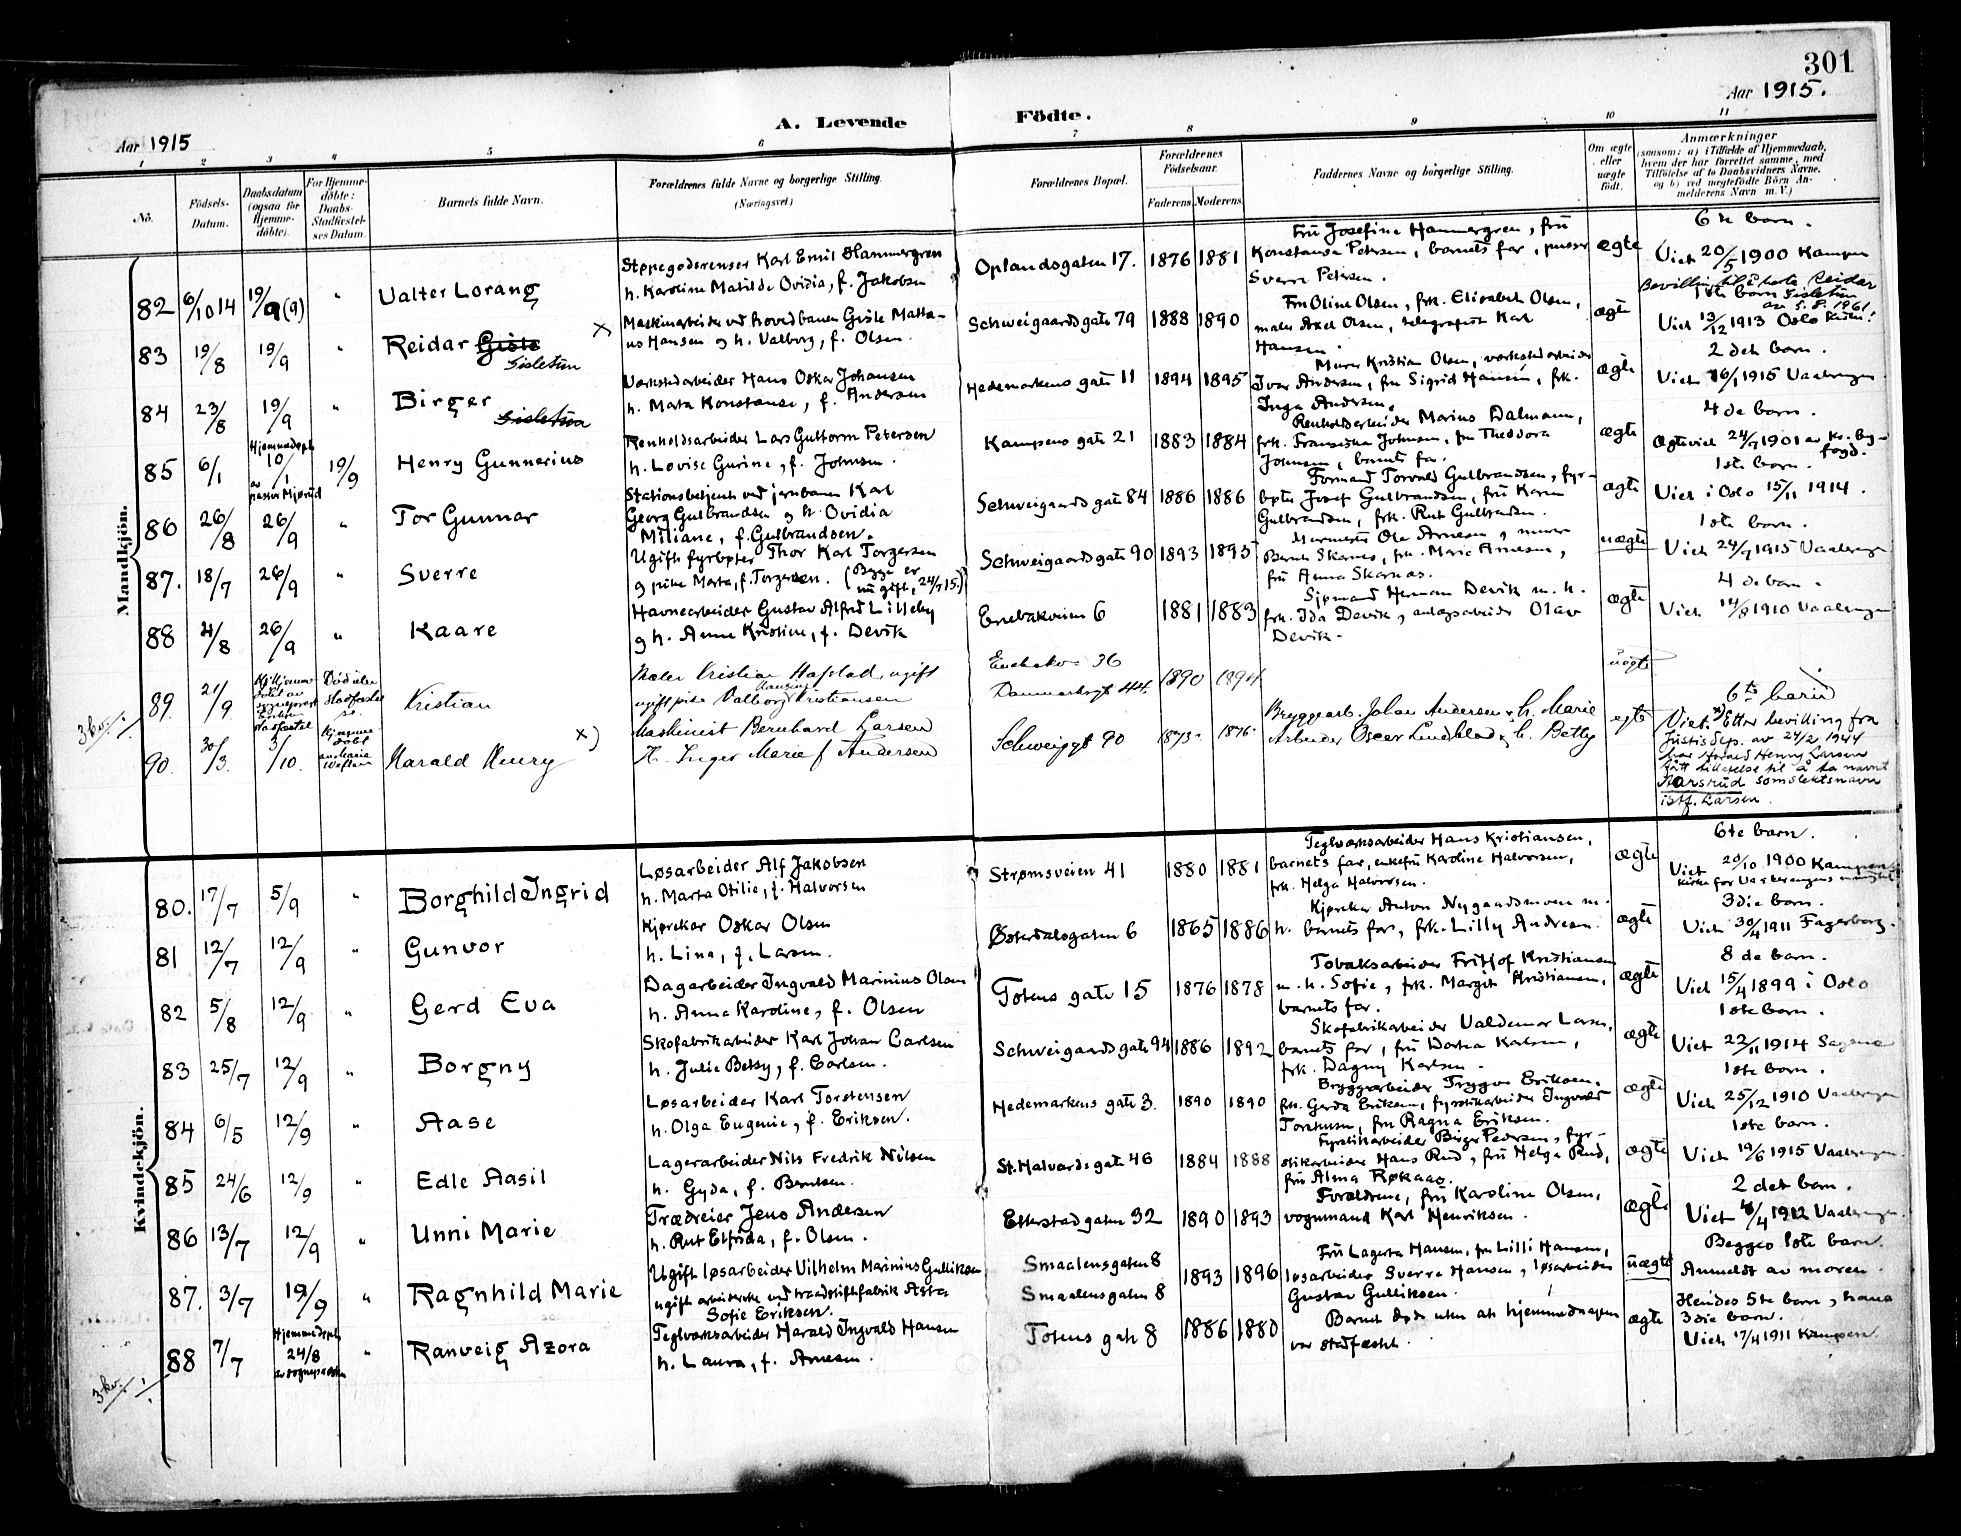 301
Aar 1915
A. Levende
Födte.
Aar 1915.
1 2 3 4 5 6 7 8 9 10 11
No.
Födsels-Datum.
Daabsdatum (ogsaa for Hjemme-döbte).
For Hjemme-döbte: Daabs-Stadfæstel-ses Datum.
Barnets fulde Navn.
Forældrenes fulde Navne og borgerlige Stilling.
(Næringsvei)
Forældrenes Bopæl.
Forældrenes Födselsaar.
Faderens. Moderens.
Faddernes Navne og borgerlige Stilling.
Om ægte eller uægte födt.
Anmærkninger
(saasom: a) i Tilfælde af Hjemmedaab,
hvem der har forrettet samme, med
Tilföielse af to Daabsvidners Navne,
og b) ved uægtefödte Börn An-
melderens Navn m. V.)
Mandkjön.
82 6/10 14 19/9 (9) " Valter Lorang
Støpegodsrenser Karl Emil Hammergren
h. Karoline Matilde Ovidia, f. Jakobsen
Oplandsgaten 17. 1876 1881
Frü Josefine Hammergren, frü
Konstanse Petersen, barnets far, pusser
Sverre Petersen.
ægte
6te barn.
Viet 20/5 1900 Kampen
83 19/8 19/9 " Reidar Gisle
Gisletün
Maskinarbeider ved hovedbanen Gisle Matta-
us Hansen og h. Valborg, f. Olsen.
Schweigaardsgate 79 1888 1890
Frü Oline Olsen, frk. Elisabeth Olsen,
maler Axel Olsen, telegrafist Karl
Hansen.
ægte
Bevilling til å hete Reidar
Gisletün
av 5.8.1961.
1ste barn
Viet 13/12 1913 Oslo kirke.
84 23/8 19/9 " Birger
Gisletün
Værkstedarbeider Hans Oskar Johansen
h. Marta Konstanse, f. Andersen
Hedemarkens gate 11 1894 1895
Murer Kristian Olsen, værkstedarbeider
Ivar Andersen, frü Sigrid Hansen, frk.
Inga Andersen.
ægte
2 det barn.
Viet 16/1 1915 Vaalerengen
85 6/1 Hjemmedøpt 10/1 av 19/9 Henry Gunnerius
Renholdsarbeider Lars Guttorm Petersen
h. Lovise Gurine, f. Johnsen.
Kampens gate 21 1883 1884
Renholdsarbeider Marius Dalmann,
frk. Franziska Johnsen, frü Theodora
Johnsen, barnets far.
ægte
4 de barn.
Ægteviet 24/7 1901 av Kr. by-
fogd.
86 26/8 26/9 " Tor Gunnar
Stationsbetjent ved jernbanen Karl
Georg Gulbrandsen og h. Ovidia
Miliane, f. Gulbrandsen.
Schweigaards gate 84 1886 1886
Formand Torvald Gulbrandsen, fyr-
bøter Josef Gulbrandsen, frü Karen
Gulbrandsen, frk. Rut Gulbrandsen.
ægte
1ste barn.
Viet i Oslo 15/11 1914.
87. 18/7 26/9 " Sverre
Ugift fyrbøter Thor Karl Torgersen
og pike Marta, f. Torgersen. (Begge er
nu gift, 24/7 15.)
Schweigaardsgate 90 1893 1895
Murmester Ole Arnesen, murer
Bernt Skarnes, frk. Marie Arnesen,
frü Anna Skarnæs.
uægte
1ste barn.
Viet 24/7 1915 Vaalerengen
88 4/8 26/9 " Kaare
Havnearbeider Gustav Alfred Lilleby
og h. Anne Kristine, f. Devik
Enebakveien 6 1881 1883
Sjømand Herman Devik m. h.
frk. Ida Devik, anlægsarbeider Olav
Devik.
ægte
4 de barn.
Viet 14/8 1910 Vaalerengen
89. 21/9 Kristian
Maler Kristian Hafstad, ugift
ugift pike Valborg Kristiansen
Hansine
Enebakv. 36
Danmarksgt 44. 1890 1894
uægte
90. 30/3 3/10. Hjemme-döbt Harald Henry x)
Maskinist Bernhard Larsen
H. Inger Marie f Andersen
Schweiggt 90 1873 1876
Bryggearb. Johan Andersen & h. Marie
Arbeider Oscar Lindblad & h. Betty
egte
6te barn
Viet x) Etter bevilling fra
Justisdep. av 24/2 1944
har Harald Henry Larsen
fått tillatelse til å ta navnet
Harsrud som slektsnavn
istf. Larsen.
3 kv.
Kvindekjön.
80. 17/7 5/9 " Borghild Ingrid
Løsarbeider Alf Jakobsen
h. Marta Otilie, f. Halvorsen
Strømsveien 41 1880 1881
Teglværksarbeider Hans Kristiansen,
barnets far, enkefrü Karoline Halvorsen,
frk. Helga Halvorsen.
ægte
6te barn.
Viet 20/10 1900 Kampens
kirke for Vaalerengens menighet
81 12/7 12/9 " Gunvor
Kjørekar Oskar Olsen
h. Lina, f. Larsen.
Østerdalsgaten 6 1865 1886
Kjørekar Anton Nygaardsmoen m.
h. barnets far, frk. Lilly Andresen.
ægte
3die barn.
Viet 30/4 1911 Fagerborg.
82 5/8 12/9 " Gerd Eva
Dagarbeider Ingvald Marinius Olsen
h. Anna Karoline, f. Olsen
Totens gate 15 1876 1878
Tobaksarbeider Fritjof Kristiansen
m. h. Sofie, frk. Margit Kristiansen,
barnets far.
ægte
8 de barn.
Viet 15/4 1899 i Oslo
83 25/7 12/9 " Borgny
Skofabrikarbeider Karl Johan Carlsen
h. Julie Betsy, f. Carlsen.
Schweigaards gate 94 1886 1892
Skofabrikarbeider Valdemar Larsen,
barnets far, frü Dortea Karlsen,
frk. Dagny Karlsen.
ægte
1ste barn.
Viet 22/11 1914 Sagene
84 6/5 12/9 " Aase
Løsarbeider Karl Torstensen
h. Olga Eugenie, f. Eriksen.
Hedemarkens gate 3. 1890 1890
Bryggearbeider Trygve Eriksen,
frk. Gerda Eriksen, fyrstikarbeider Ingvald
Torstensen, frü Ragna Eriksen.
ægte
1ste barn.
Viet 25/12 1910 Vaalerengen
85 24/6 12/9 " Edle Aasil
Lagerarbeider Nils Fredrik Nilsen
h. Gyda, f. Berntsen.
St. Halvards gate 46 1884 1888
Fyrstikarbeider Birger Pedersen, fyr-
stikarbeider Hans Rud, frü Helga Rud,
frü Alma Røkaas.
ægte
1ste barn.
Viet 19/6 1915 Vaalerengen
86 13/7 12/9 " Unni Marie
Trædreier Jens Andersen
h. Rut Elfrida, f. Olsen.
Etterstadgaten 32 1890 1893
Forældrene, frü Karoline Olsen,
vognmand Karl Henriksen.
ægte
2 det barn.
Viet /4 1912 Vaalerengen.
87. 3/7 19/9 " Ragnhild Marie
Ugift løsarbeider Vilhelm Marinius Gulliksen
ugift arbeiderske ved traadstiftfabrik Asta
Sofie Eriksen.
Smaalensgaten 8
Smaalensgaten 8 1893 1896
Frü Lagerta Hansen, frü Lilli Hansen,
løsarbeider Sverre Hansen, løsarbeider
Gustav Gulliksen.
uægte
Begges 1ste barn.
Anmeldt av moren.
88 7/7 Hjemmedøpt 24/8 " Ranveig Azora
Teglværksarbeider Harald Ingvald Hansen
h. Laura, f. Arnesen.
Totens gate 8 1886 1880
Barnet døde uten at hjemmedaapen
var stadfæstet.
ægte
Hendes 5te barn, hans
3die barn.
Viet 17/4 1911 Kampen.
3 kv.